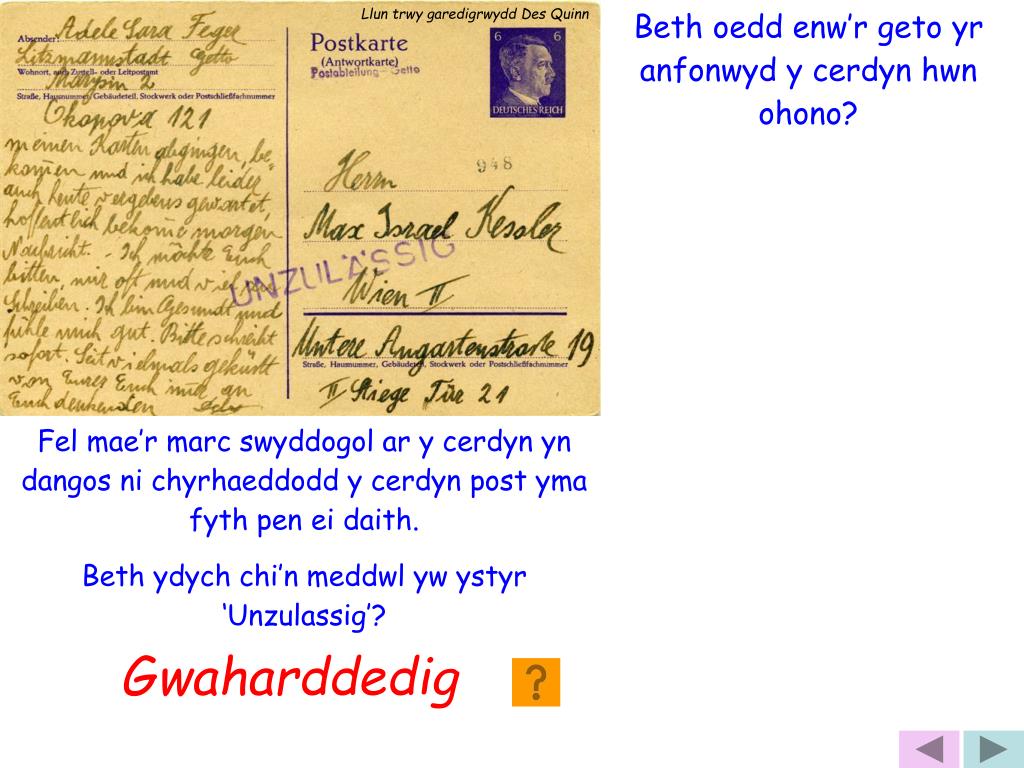 Llun trwy garedigrwydd Des Quinn
Absender: Adele Sara Feger
Litzmannstadt Getto
Wohnort, auch Zustell- oder Leitpostamt
Marysin 2
Straße, Hausnummer, Gebäudeteil, Stockwerk oder Postschließfachnummer
Okopova 121
meinen Karten abgingen, be-
komen und ich habe leider
auch heute vergebens gewartet,
hoffentlich bekome morgen
Nachricht. - Ich möchte Euch
bitten, mir oft und viel zu
schreiben. Ich bin Gesund und
fühle mich gut. Bitte schreibt
sofort. Seit vielmals geküsst
von Eurer Euch immer an
Euch denkenden
Postkarte
(Antwortkarte)
Postabteilung-Getto
6 6
DEUTSCHES REICH
948
Herrn
Max Israel Kessler
UNZULÄSSIG
Wien II
Untere Augartenstrasse 19
Straße, Hausnummer, Gebäudeteil, Stockwerk oder Postschließfachnummer
II Stiege Tür 21
Beth oedd enw’r geto yr
anfonwyd y cerdyn hwn
ohono?
Fel mae’r marc swyddogol ar y cerdyn yn
dangos ni chyrhaeddodd y cerdyn post yma
fyth pen ei daith.
Beth ydych chi’n meddwl yw ystyr
‘Unzulassig’?
Gwaharddedig
?